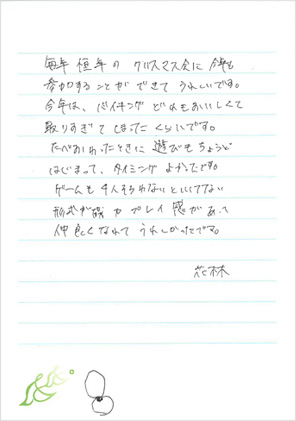 毎年 恒年の クリスマス会に 今年も
参加することができて うれしいです。
今年は、バイキング どれもおいしくて
取りすぎて しまったくらいです。
たべおわったときに 遊びも ちょうど
はじまって、タイミング よかったです。
ゲームも 4人そろわないといけない
形式が協力プレイ感があって
仲良くなれて うれしかったです。
花林